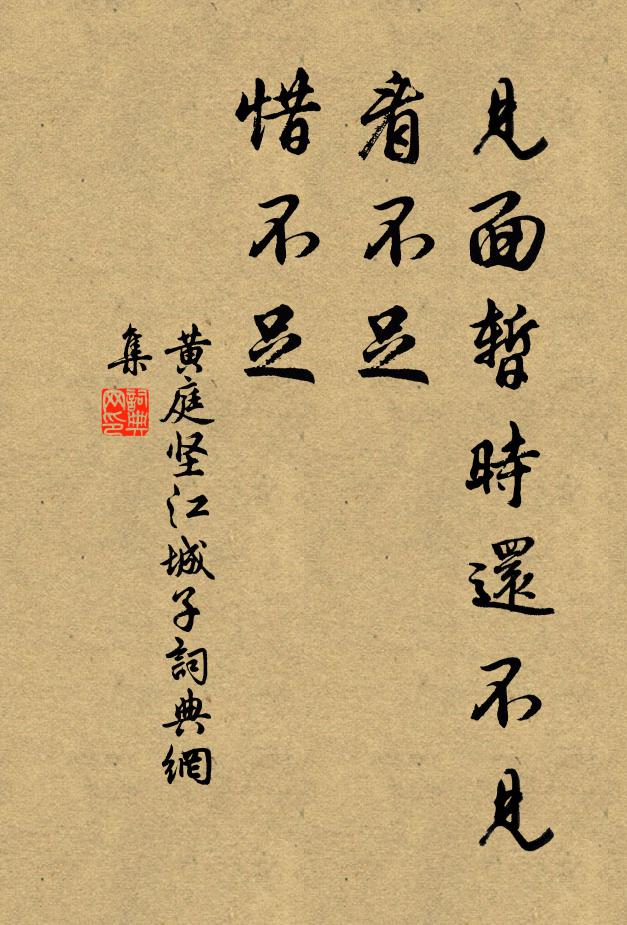 見面暫時還不見
看不足
惜不足
黄庭坚江城子詞典網
集
詞典
网印